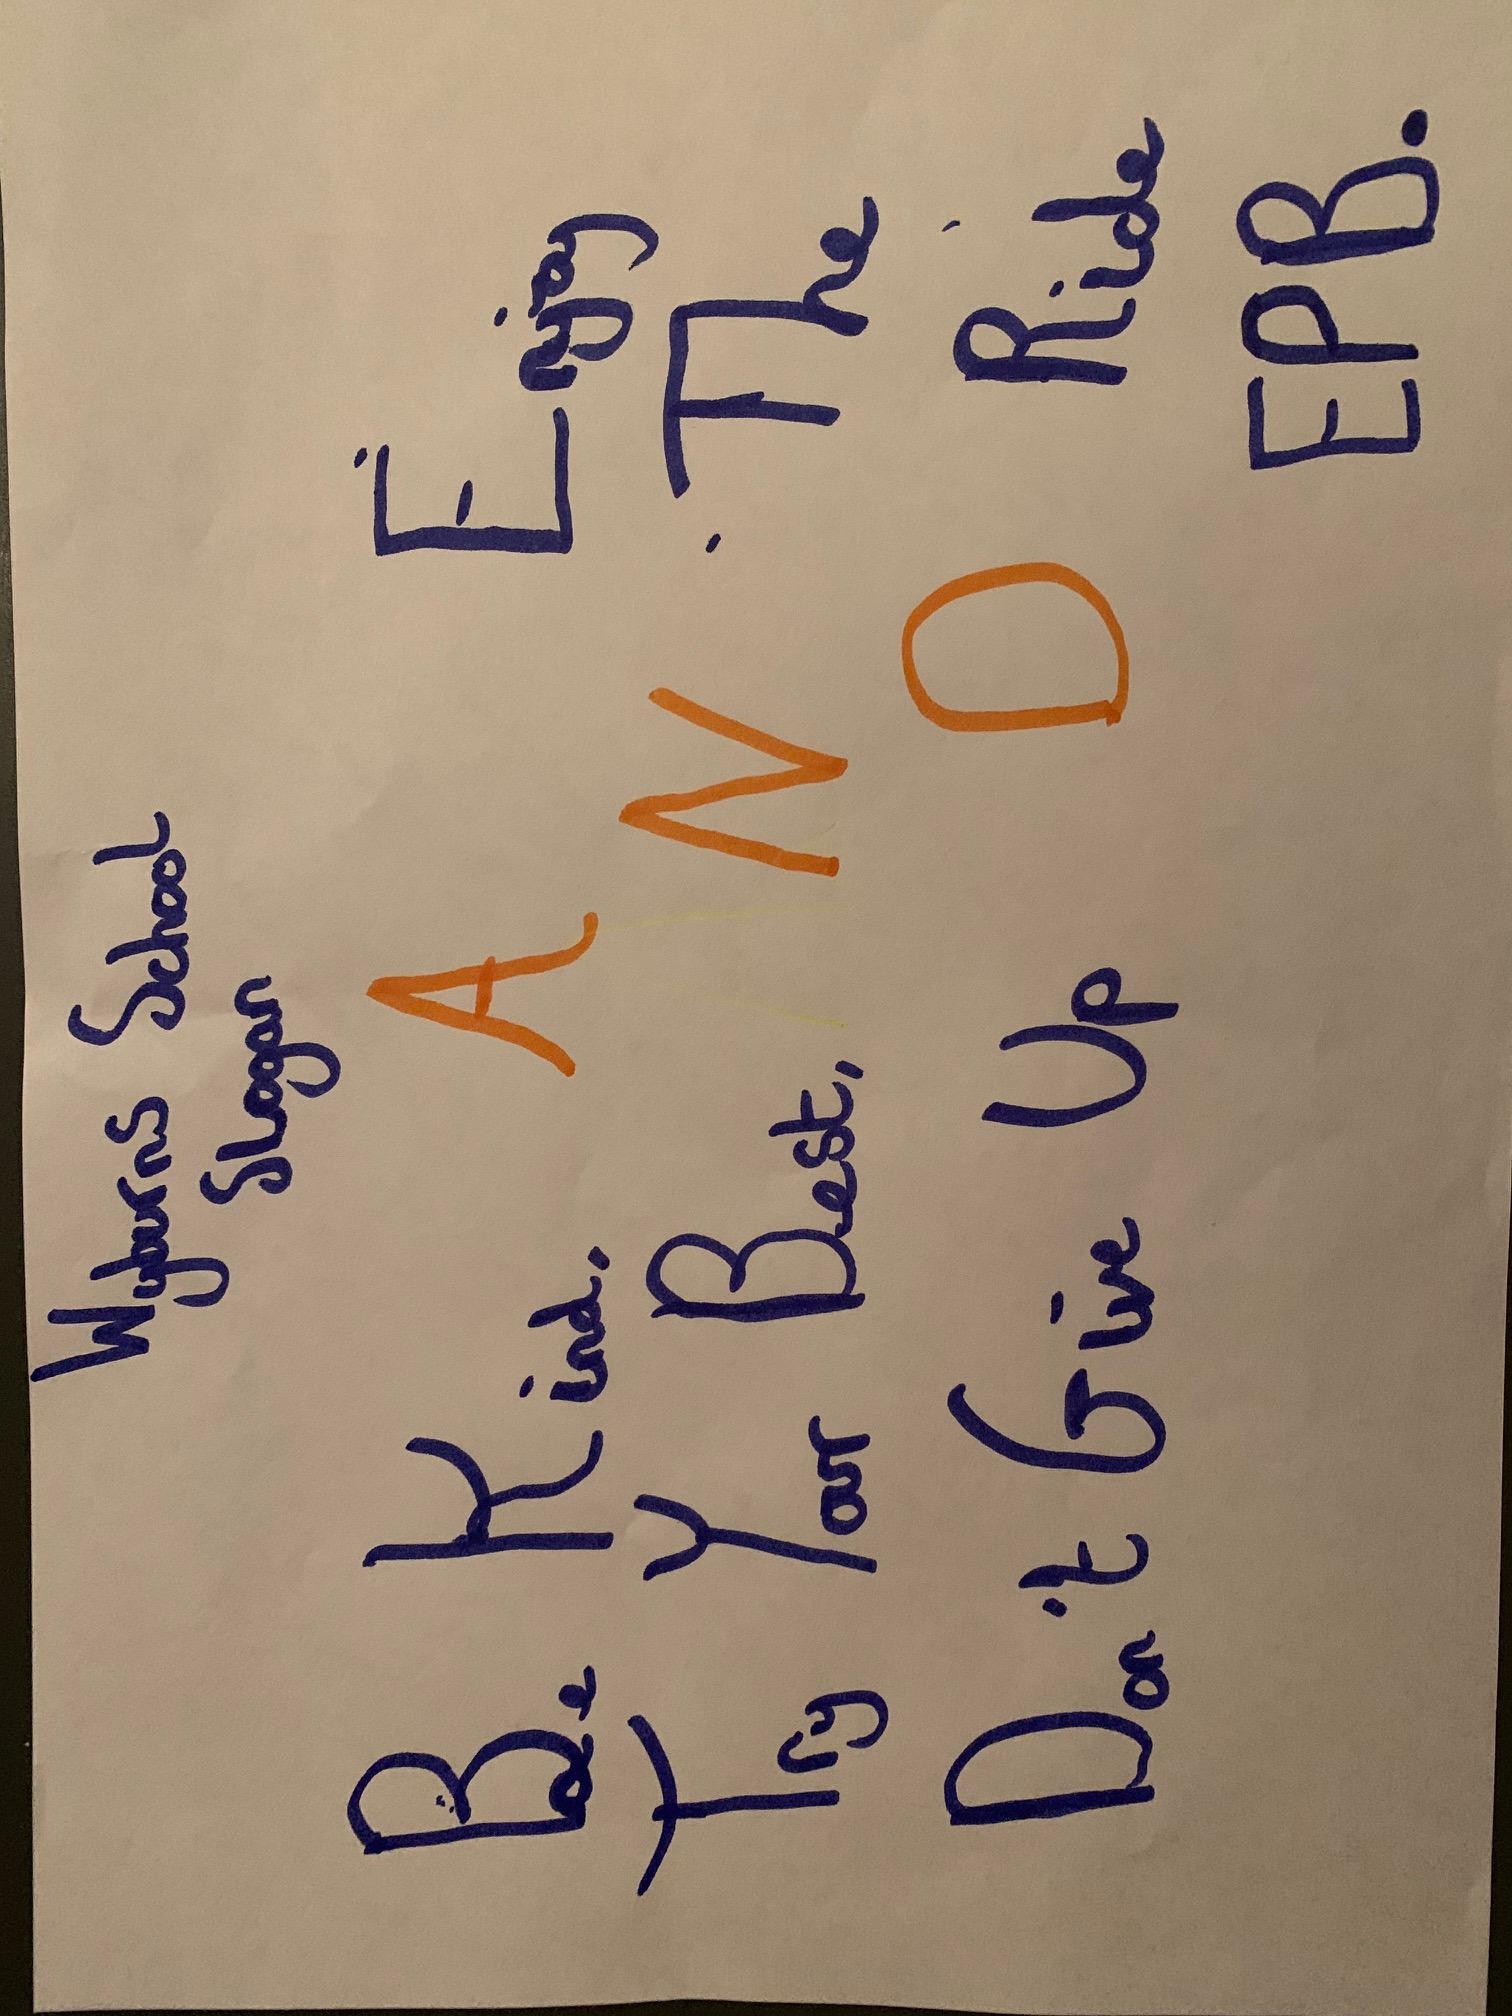 Wyburns School
Slogan
Be Kind.
Try Your Best.
Don't Give Up
A
N
D
Enjoy
The
Ride
EPB.